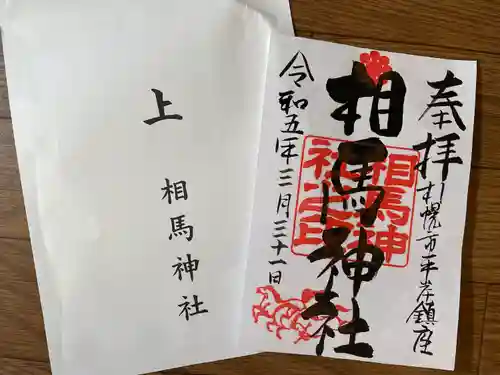 上
相馬神社
奉拝
札幌市平岸鎮座
相馬神社
相馬神
社之印
令和五年三月三十一日